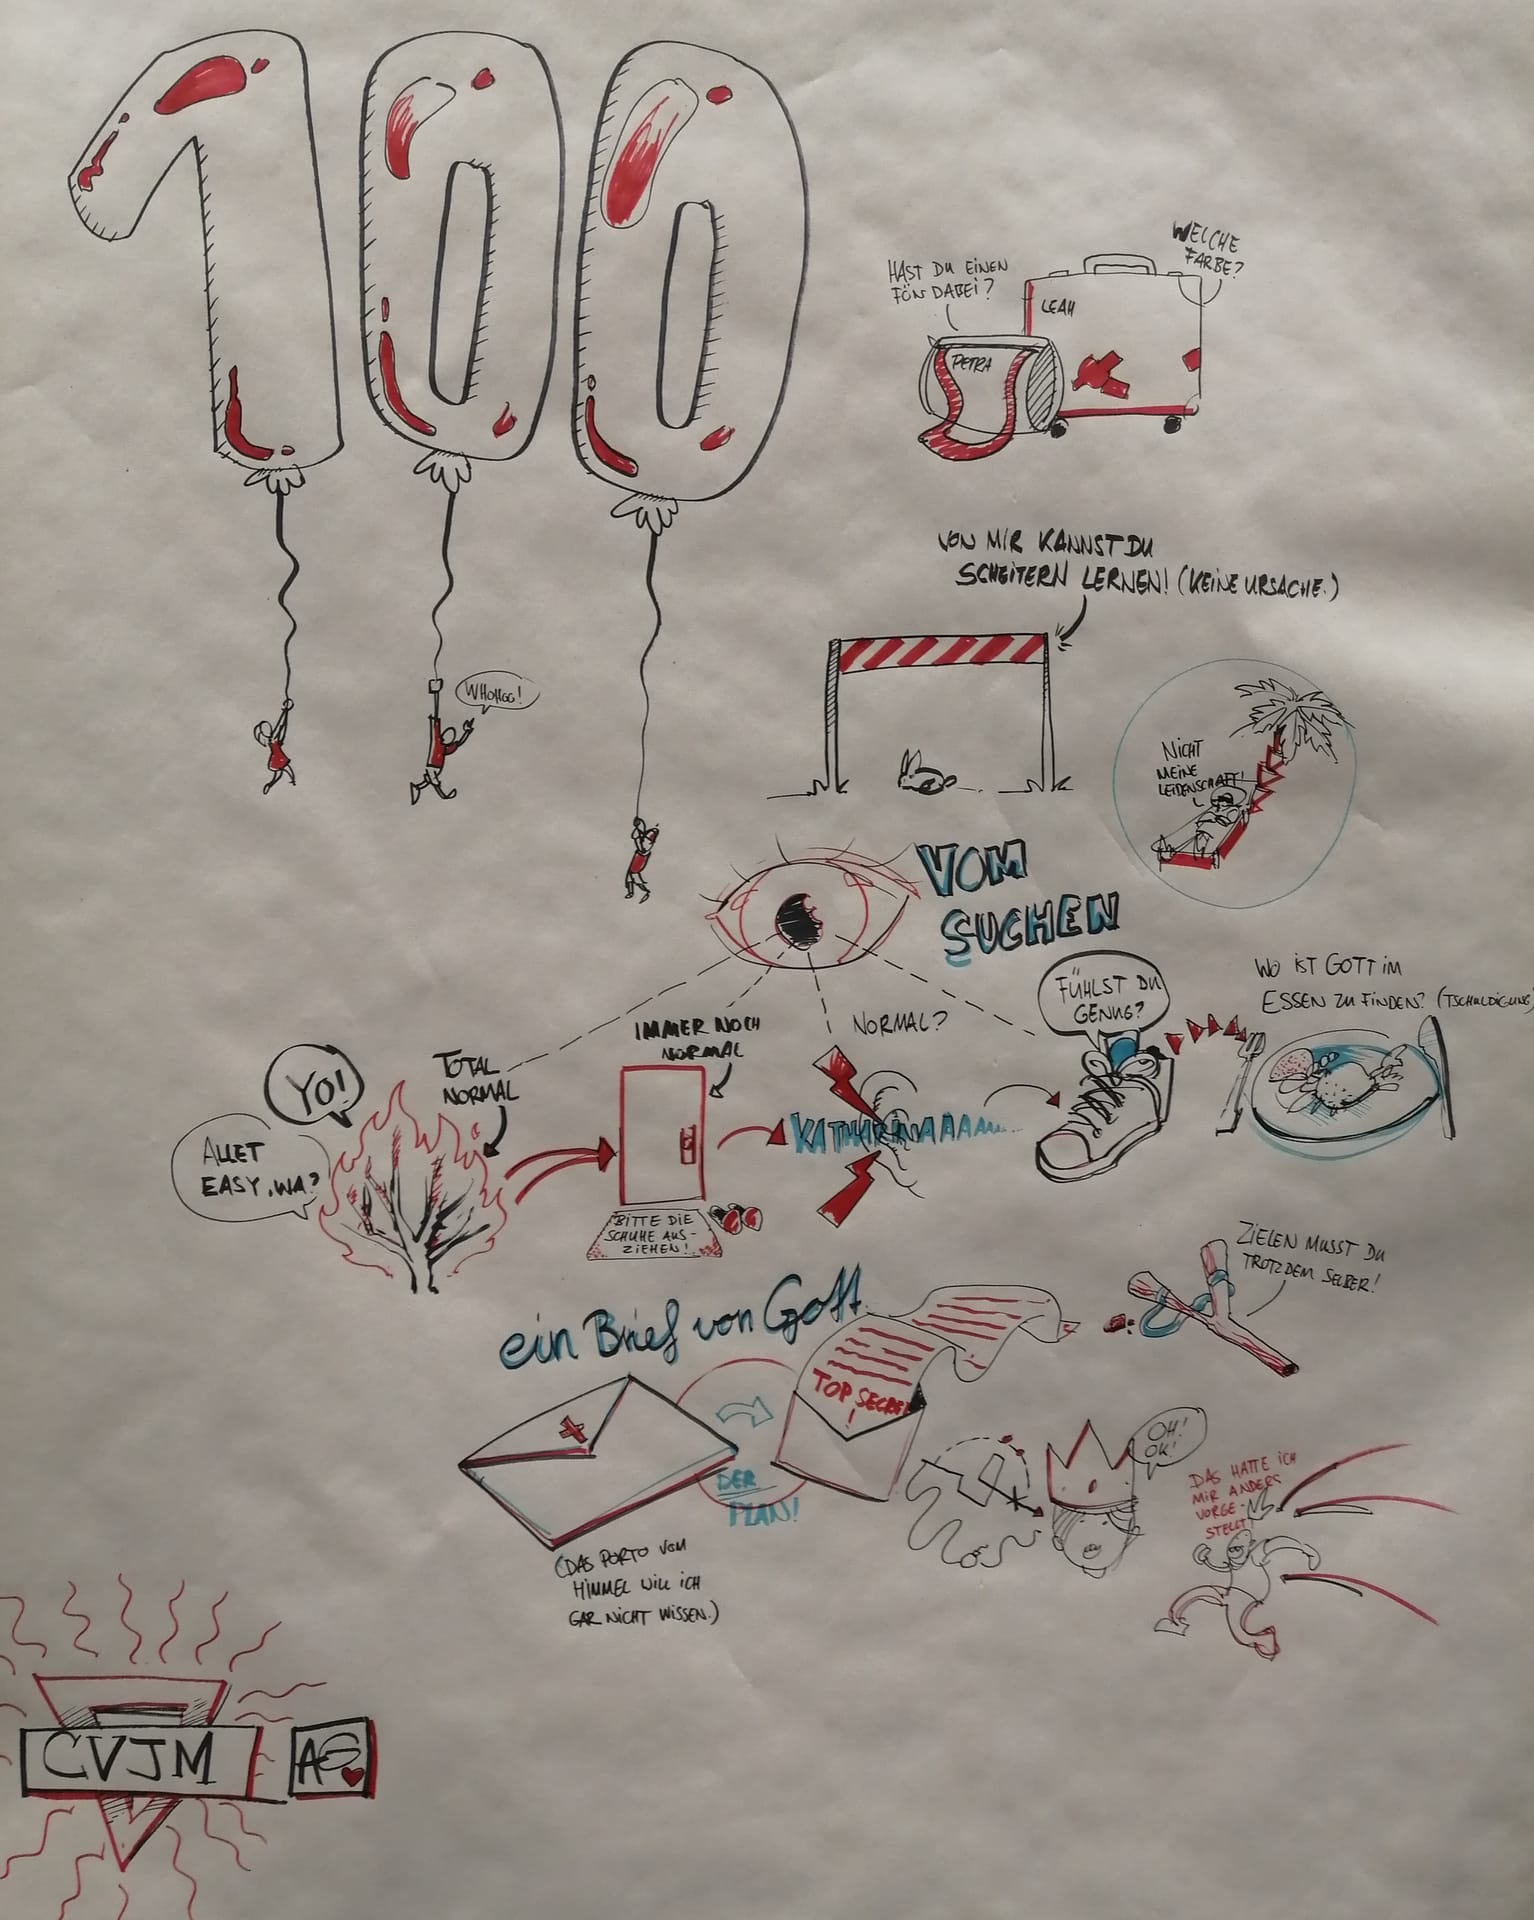 100
WHOHOO!
HAST DU EINEN
FÖN DABEI?
WELCHE
FARBE?
LEAH
PETRA
VON MIR KANNST DU
SCHEITERN LERNEN! (KEINE URSACHE.)
NICHT
MEINE
LEIDENSCHAFT!
VOM
SUCHEN
YO!
ALLET
EASY, WA?
TOTAL
NORMAL
IMMER NOCH
NORMAL
BITTE DIE
SCHUHE AUS-
ZIEHEN!
NORMAL?
KATHARINAAAA...
FÜHLST DU
GENUG?
WO IST GOTT IM
ESSEN ZU FINDEN? (TSCHULDIGUNG)
ein Brief von Gott
TOP SECRET
!
DER
PLAN!
(DAS PORTO VOM
HIMMEL WILL ICH
GAR NICHT WISSEN.)
ZIELEN MUSST DU
TROTZDEM SELBER!
OH!
OK!
DAS HATTE ICH
MIR ANDERS
VORGE-
STELLT!
CVJM